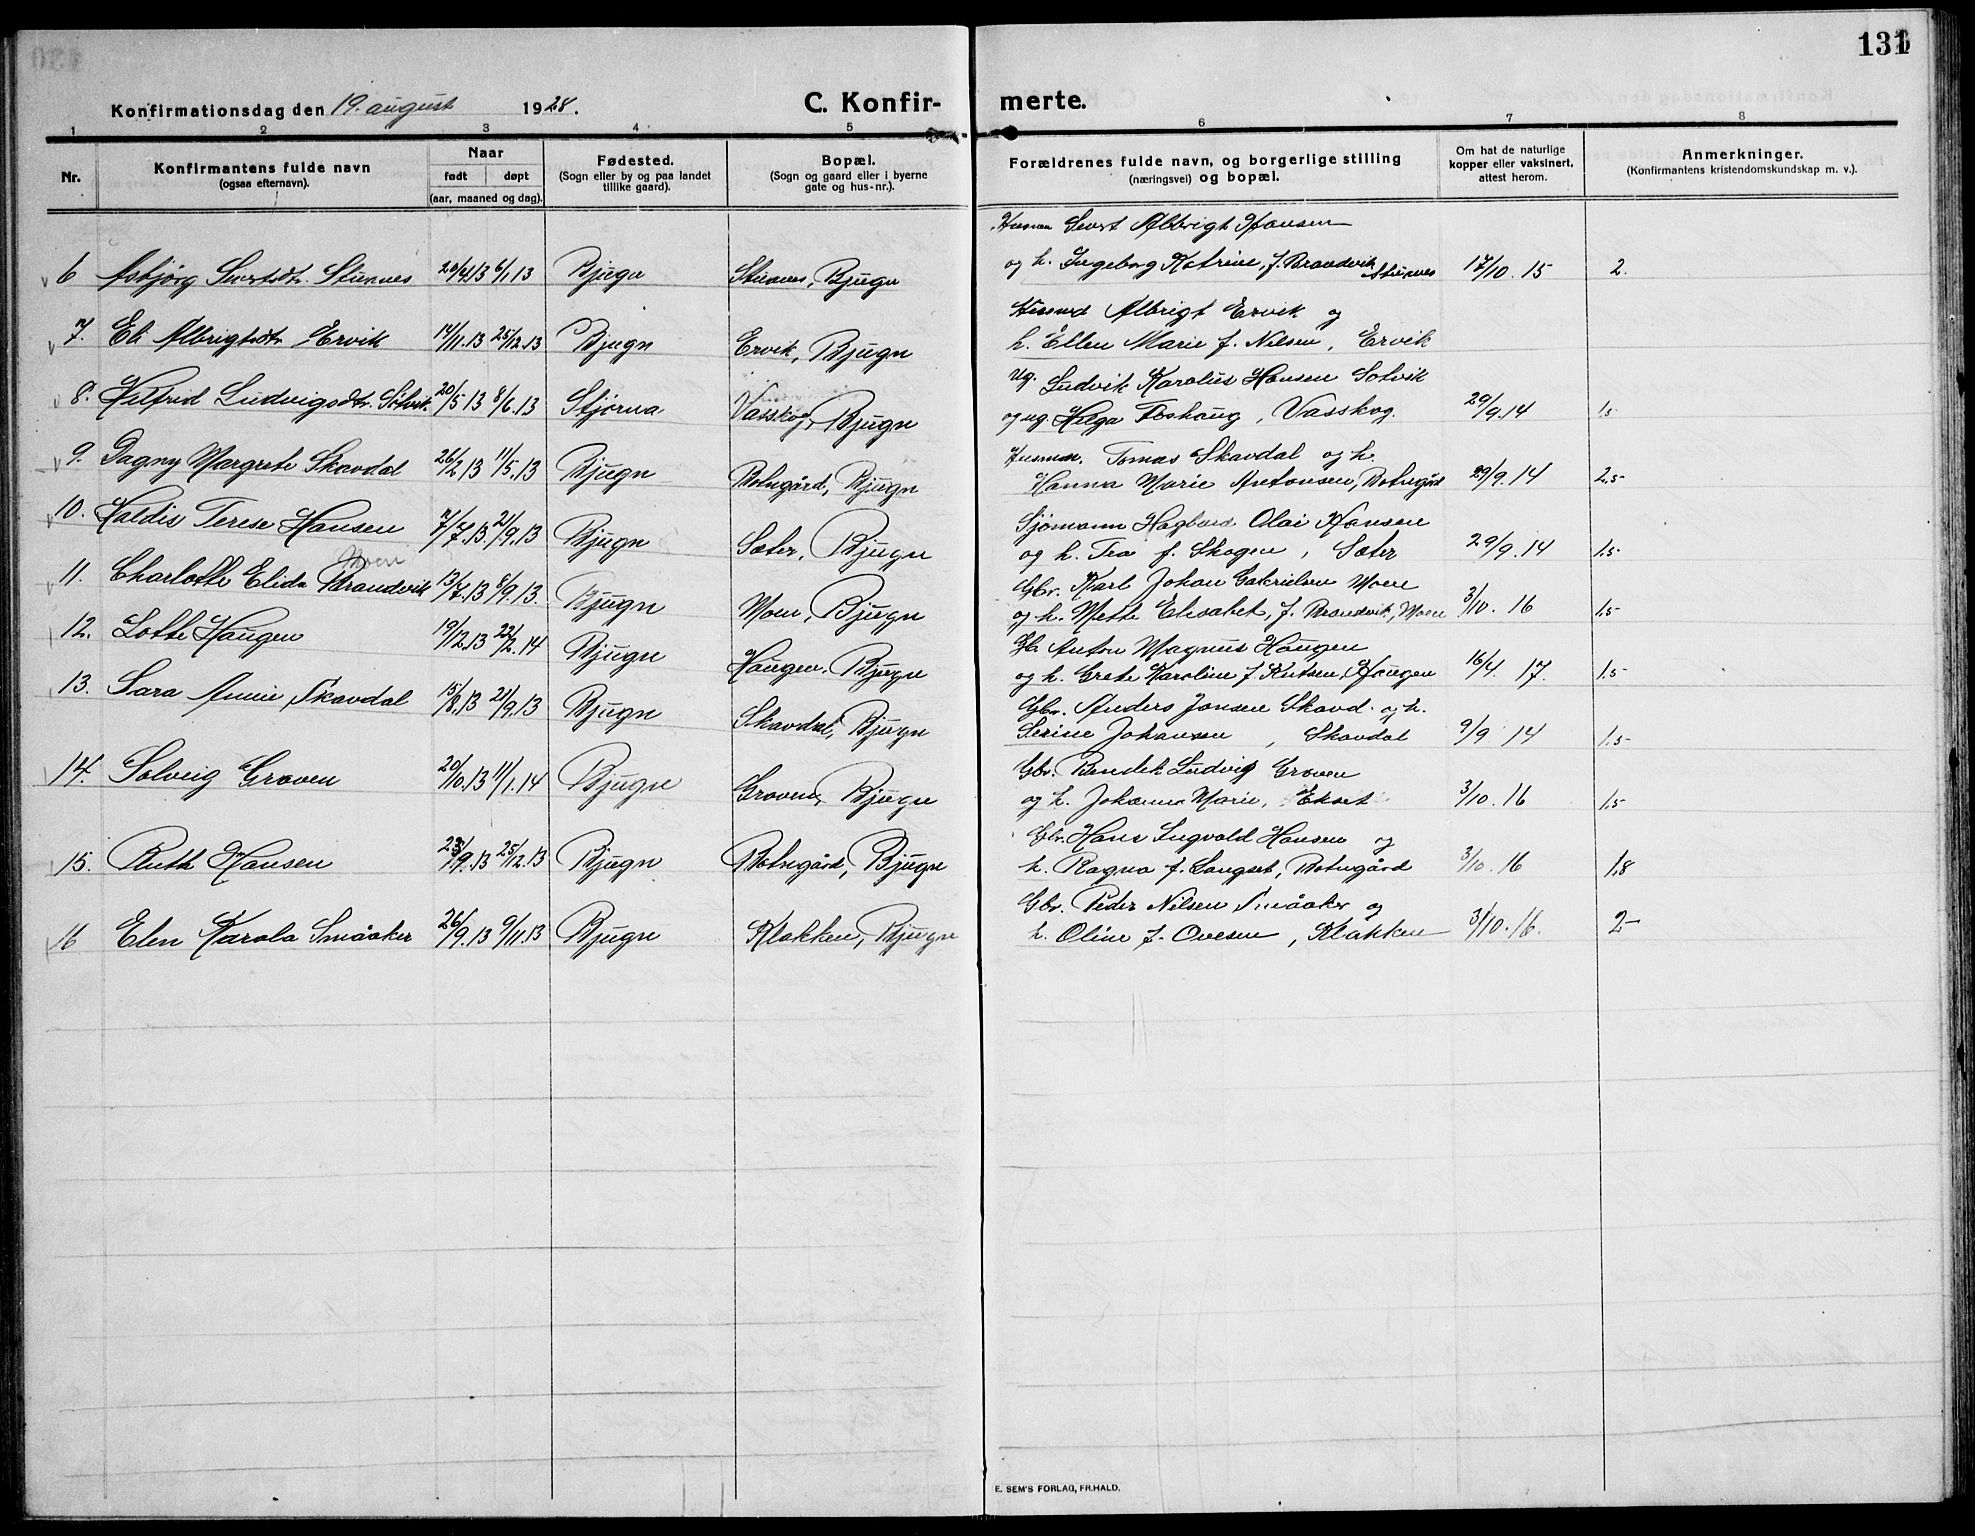 131
Konfirmationsdag den 19. august 1928. C. Konfir- merte.
1 2 3 4 5 6 7 8
Nr. Konfirmantens fulde navn (ogsaa efternavn). Naar født døpt (aar, maaned og dag). Fødested. (Sogn eller by og paa landet tillike gaard). Bopæl. (Sogn og gaard eller i byerne gate og hus-nr.). Forældrenes fulde navn, og borgerlige stilling (næringsvei) og bopæl. Om hat de naturlige kopper eller vaksinert, attest herom. Anmerkninger. (Konfirmantens kristendomskundskap m. v.).
Sivert Albrigt Hansen
6 Asbjørg Sivertsdtr. Stinnes 6/1 13 Bjugn Stinnes, Bjugn og h. Ingeborg Katrine, f. Brandvik Stinnes 17/10. 15 2.
Albrigt Ervik og
7. Eli Albrigtsdtr Ervik 14/11.13 25/12.13 Bjugn Ervik, Bjugn h. Ellen Marie f. Nilsen, Ervik
ug. Ludvik Karolus Hansen Solvik
8. Ludvigsdtr. Solvik 20/5 13 8/6.13 Stjørna Vasskog, Bjugn og ug. Helga, Vasskog. 29/9.14 1.5
Tomas Skavdal og h.
9. Dagny Margrete Skavdal 26/2 13 11/5.13 Bjugn Botngård, Bjugn Hanna Marie Antonsen, Botngård 29/9.14 2.5
Sjømann Hagbart Olai Hansen
10. Haldis Terese Hansen 7/7.13 21/9.13 Bjugn Sæter, Bjugn og h. f. Skogen, Sæter 29/9.14 1.5
Moen Gbr. Karl Johan Gabrielsen Moen
11. Charlotte Elida Brandvik 13/7.13 8/9.13. Bjugn Moen, Bjugn og h. Mette Elisabet, f. Brandvik, Moen 3/10. 16 1.5
Anton Magnus Haugen
12. Lotte Haugen 19/12.13 22/2.14 Bjugn Haugen, Bjugn og h. Grete Karoline f. Knutsen, Haugen 16/4. 17. 1.5
Gbr. Anders Jonsen Skavd. og h.
13. Sara Skavdal 15/8.13 21/9.13 Bjugn Skavdal, Bjugn Serine Johansen, Skavdal 9/9 14 1.5
Gbr. Benedik Ludvig Groven
14. Solveig Groven 20/10.13 11/1.14 Bjugn Groven, Bjugn og h. Johanna Marie, Ekset 3/10. 16 1.5
Gbr. Hans Ingvald Hansen og
15. Ruth Hansen 23/9.13 25/12.13 Bjugn Botngård, Bjugn h. Ragna f. Langset, Botngård 3/10. 16 1.8
Gbr. Peder Nilsen Småaker og
16 Elen Karola Småaker 26/9.13 9/11.13 Bjugn Klakken, Bjugn h. Oline f. Ovesen, Klakken 3/10.16. 2-
E. SEM'S FORLAG, FR.HALD.